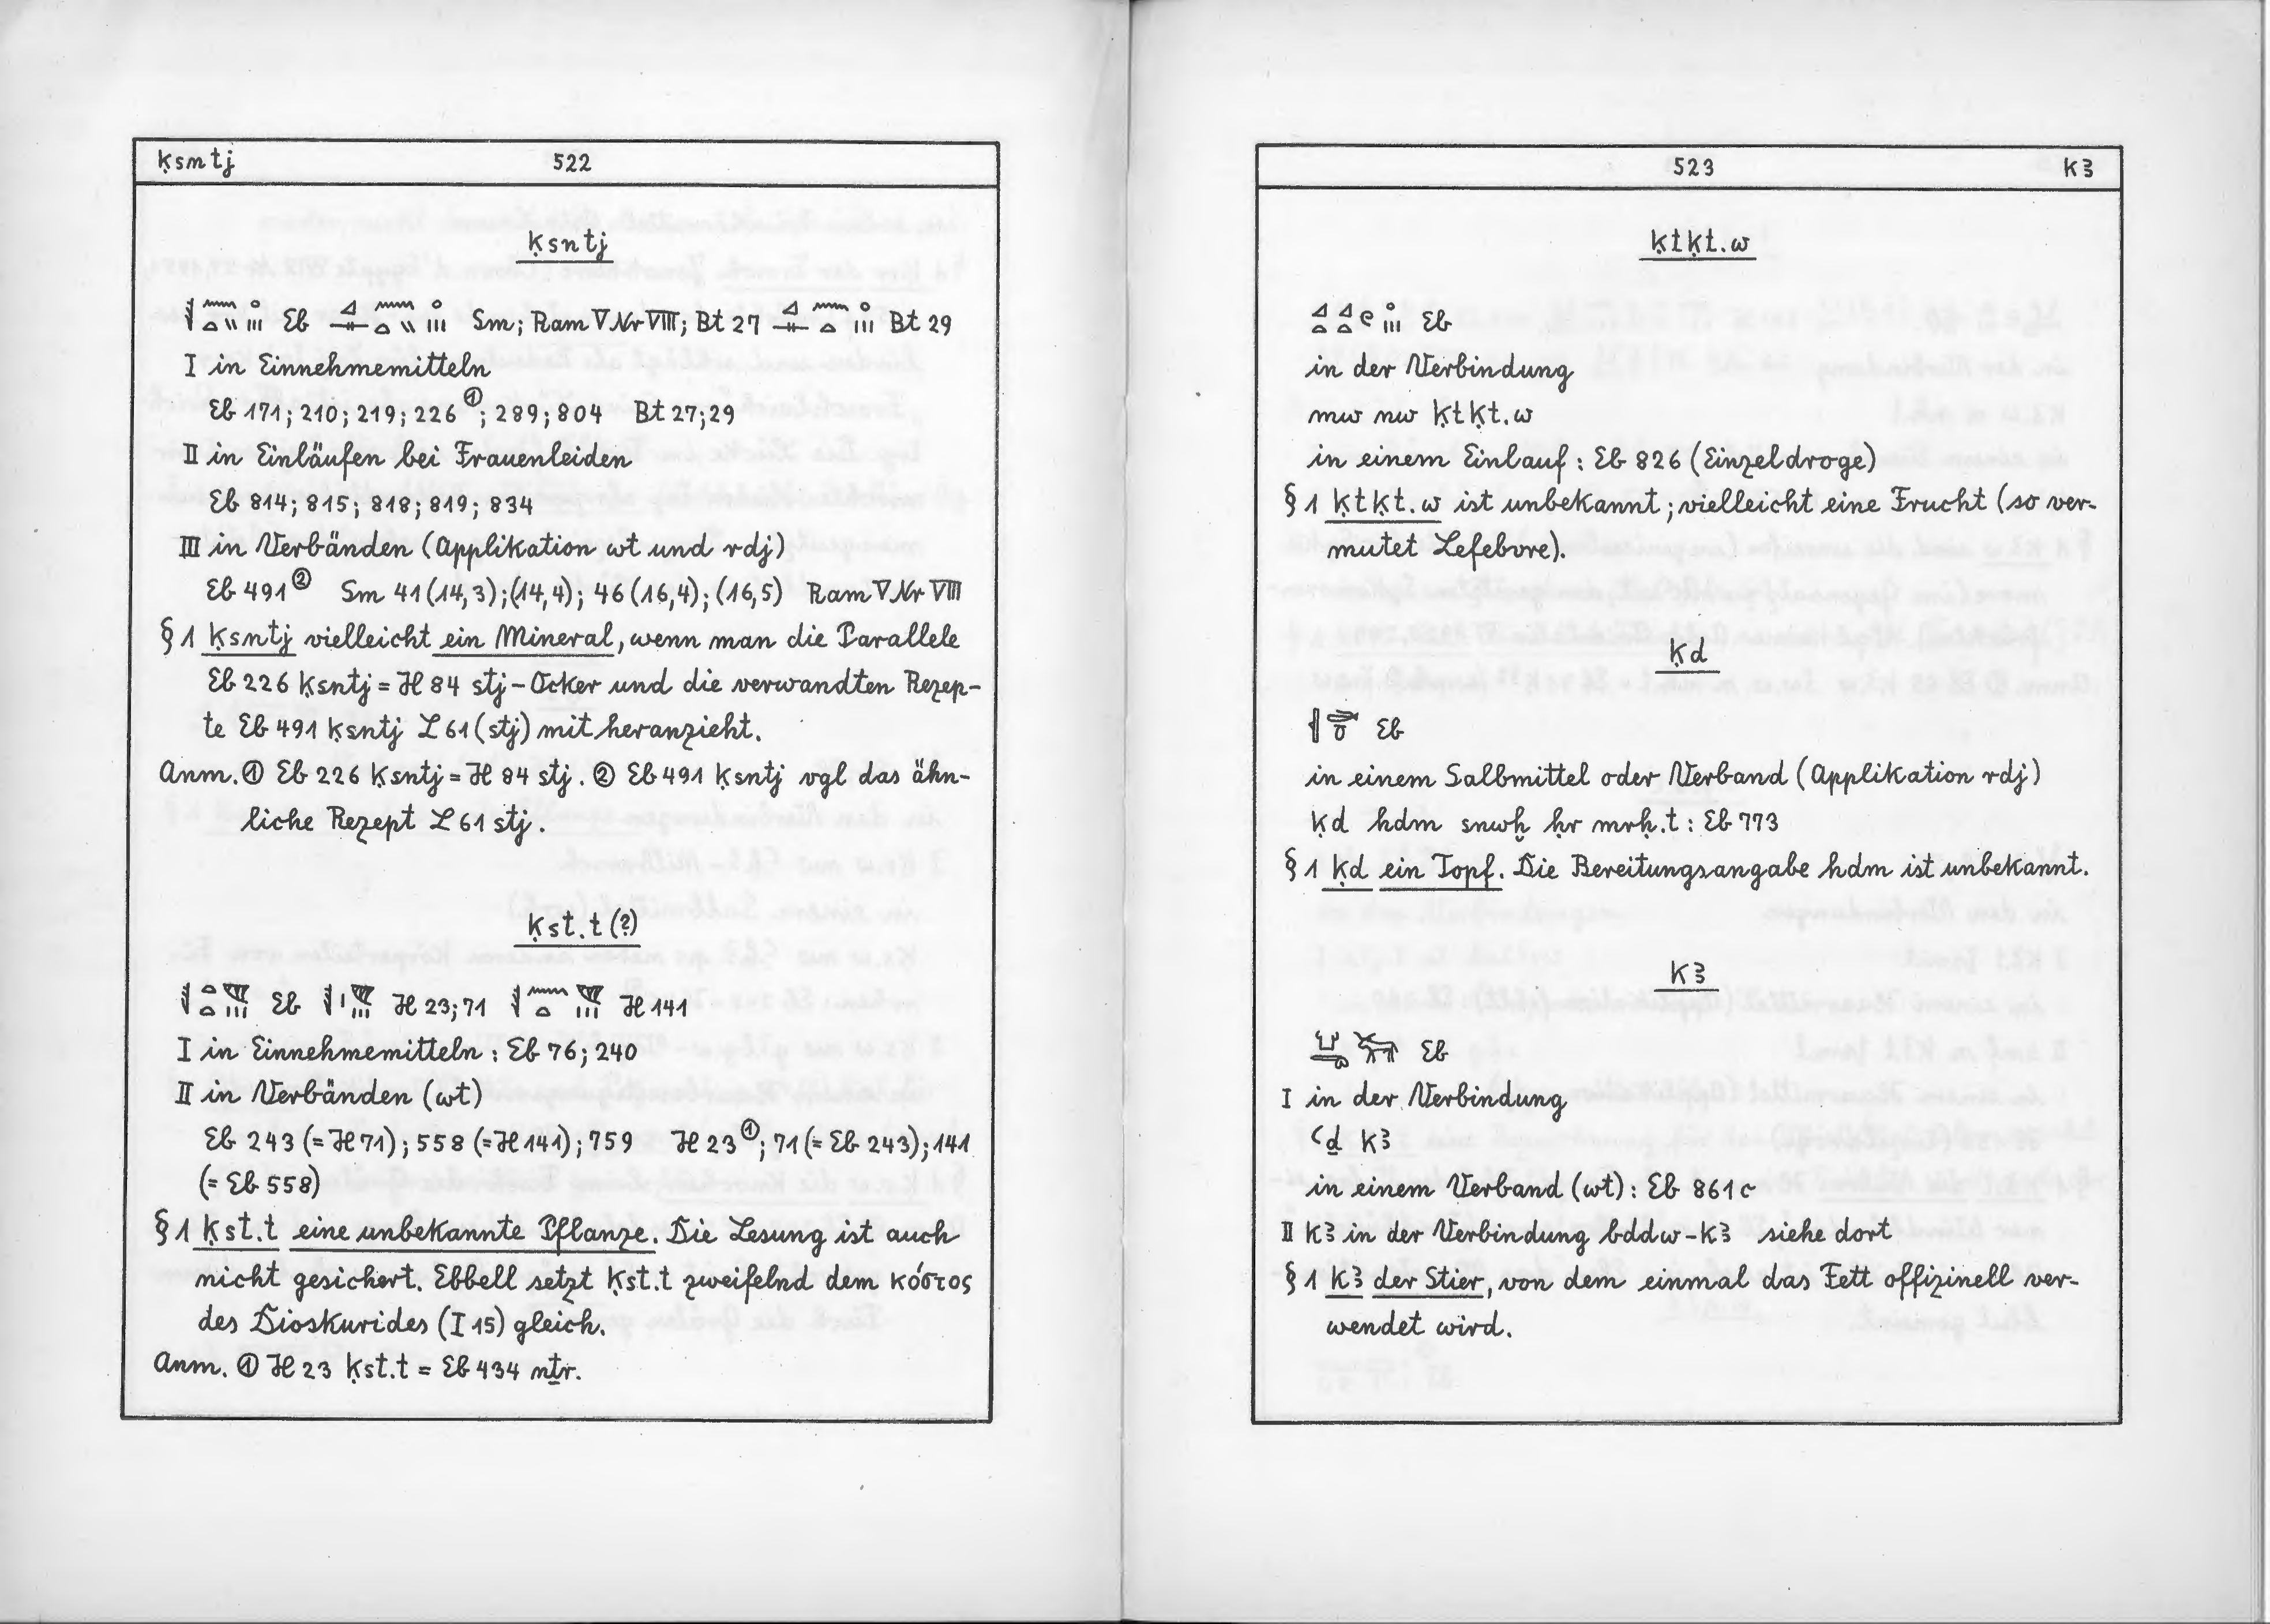 ḳsmtj 522
ḳsntj
Eb Sm; Ram V Nr VIII; Bt 27 Bt 29
I in Einnehmemitteln
Eb 171; 210; 219; 226 ①; 289; 804 Bt 27; 29
II in Einläufen bei Frauenleiden
Eb 814; 815; 818; 819; 834
III in Verbänden (Applikation wt und rdj)
Eb 491 ② Sm 41 (14,3); (14,4); 46 (16,4); (16,5) Ram V Nr VIII
§ 1 ḳsntj vielleicht ein Mineral, wenn man die Parallele
Eb 226 ḳsntj = H 84 stj-Ocker und die verwandten Rezep-
te Eb 491 ḳsntj L 61 (stj) mit heranzieht.
Anm. ① Eb 226 ḳsntj = H 84 stj. ② Eb 491 ḳsntj vgl das ähn-
liche Rezept L 61 stj.
ḳst.t (?)
Eb H 23; 71 H 141
I in Einnehmemitteln: Eb 76; 240
II in Verbänden (wt)
Eb 243 (= H 71); 558 (= H 141); 759 H 23 ①; 71 (= Eb 243); 141
(= Eb 558)
§ 1 ḳst.t eine unbekannte Pflanze. Die Lesung ist auch
nicht gesichert. Ebbell setzt ḳst.t zweifelnd dem κόστος
des Dioskurides (I 15) gleich.
Anm. ① H 23 ḳst.t = Eb 434 nṯr.
523 kꜣ
ḳtḳt.w
Eb
in der Verbindung
mw nw ḳtḳt.w
in einem Einlauf: Eb 826 (Einzeldroge)
§ 1 ḳtḳt.w ist unbekannt; vielleicht eine Frucht (so ver-
mutet Lefebvre).
ḳd
Eb
in einem Salbmittel oder Verband (Applikation rdj)
ḳd hdm snwḫ ḥr mrḥ.t: Eb 773
§ 1 ḳd ein Topf. Die Bereitungsangabe hdm ist unbekannt.
kꜣ
Eb
I in der Verbindung
ꜥḏ kꜣ
in einem Verband (wt): Eb 861c
II kꜣ in der Verbindung bddw-kꜣ siehe dort
§ 1 kꜣ der Stier, von dem einmal das Fett offizinell ver-
wendet wird.